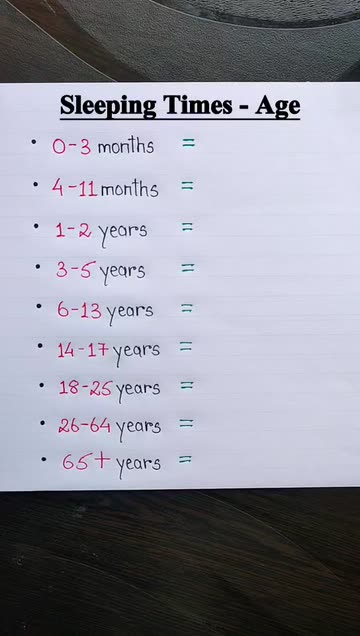 Sleeping Times - Age
• 0-3 months =
• 4-11 months =
• 1-2 years =
• 3-5 years =
• 6-13 years =
• 14-17 years =
• 18-25 years =
• 26-64 years =
• 65+ years =